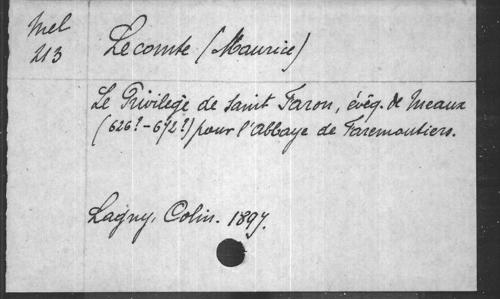 Mel
213
Lecomte (Maurice)
Le Privilège de Saint Faron, évêq. de Meaux
(626?-672?) pour l'Abbaye de Faremoutiers.
Lagny, Colin. 1897.